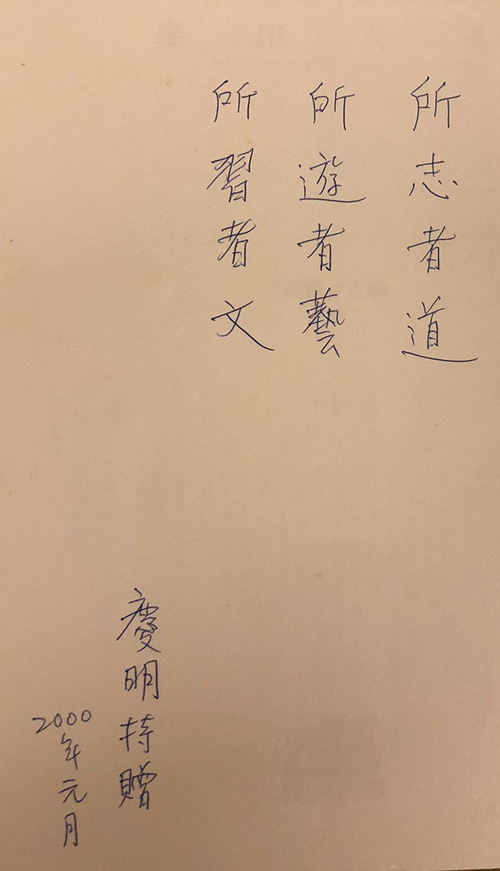 所志者道
所遊者藝
所習者文
慶明持贈
2000年元月